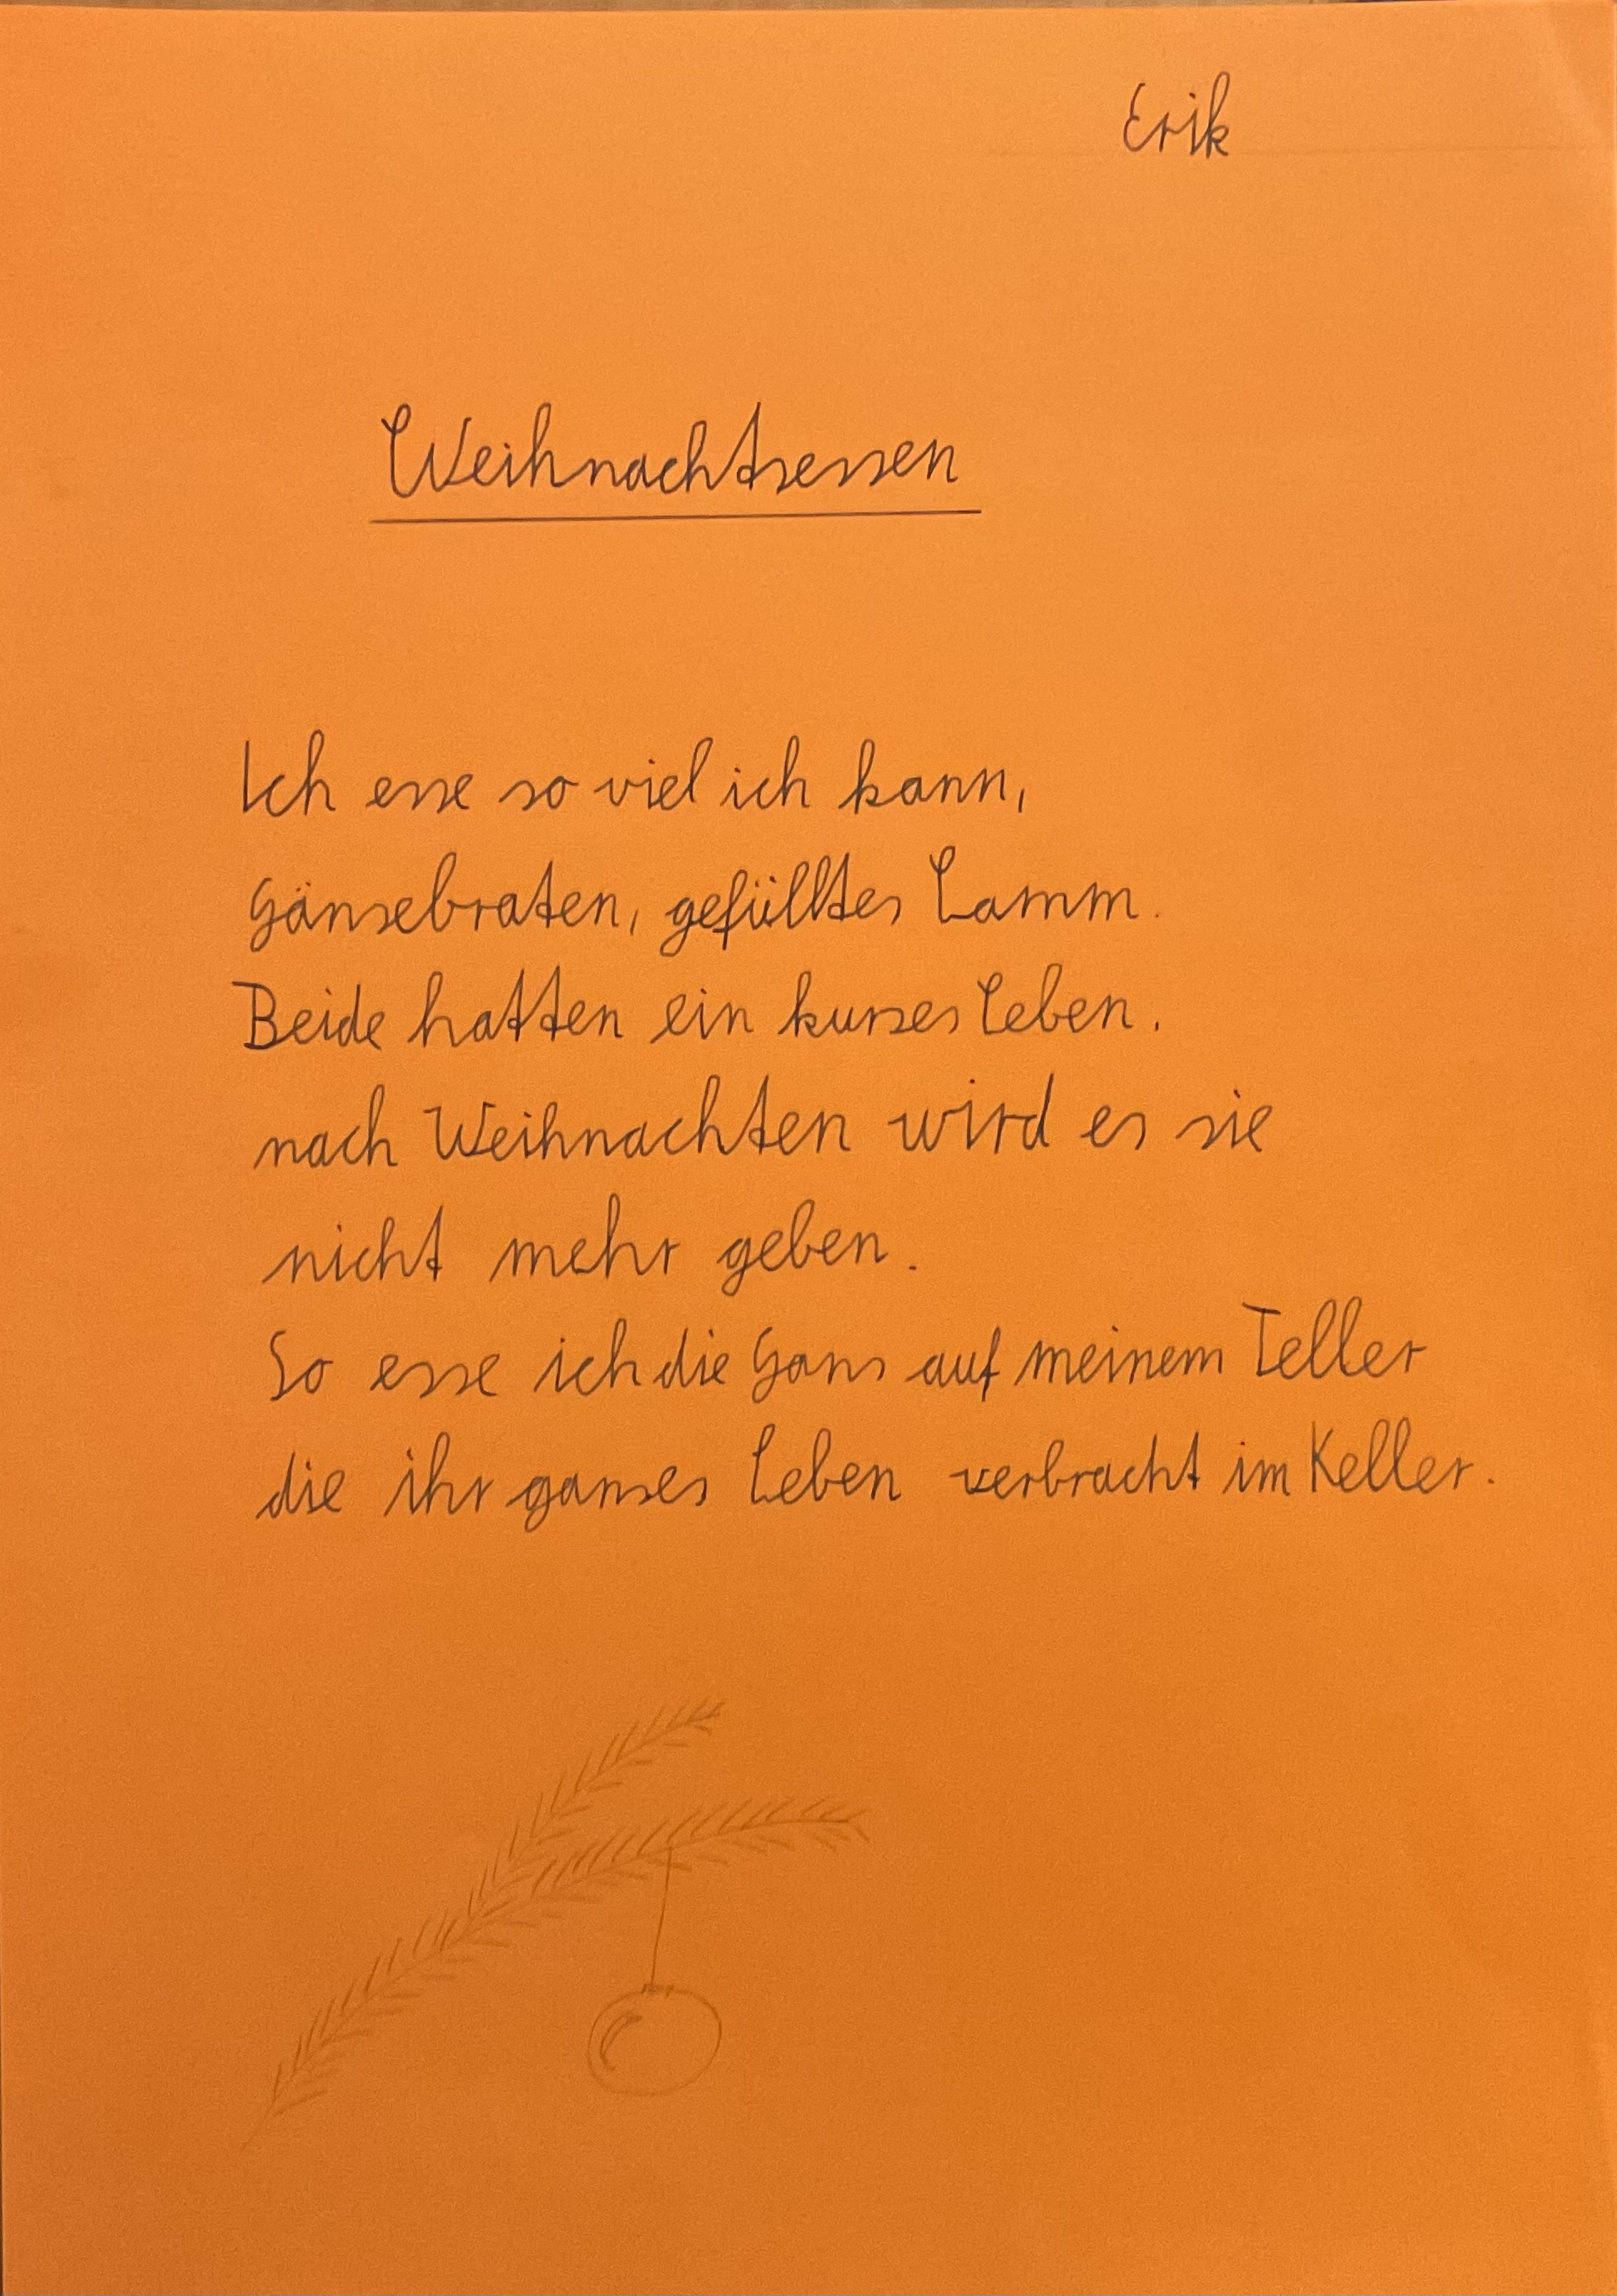 Erik
Weihnachtsessen
Ich esse so viel ich kann,
Gänsebraten, gefülltes Lamm.
Beide hatten ein kurzes Leben.
nach Weihnachten wird es sie
nicht mehr geben.
So esse ich die Gans auf meinem Teller
die ihr ganzes Leben verbracht im Keller.